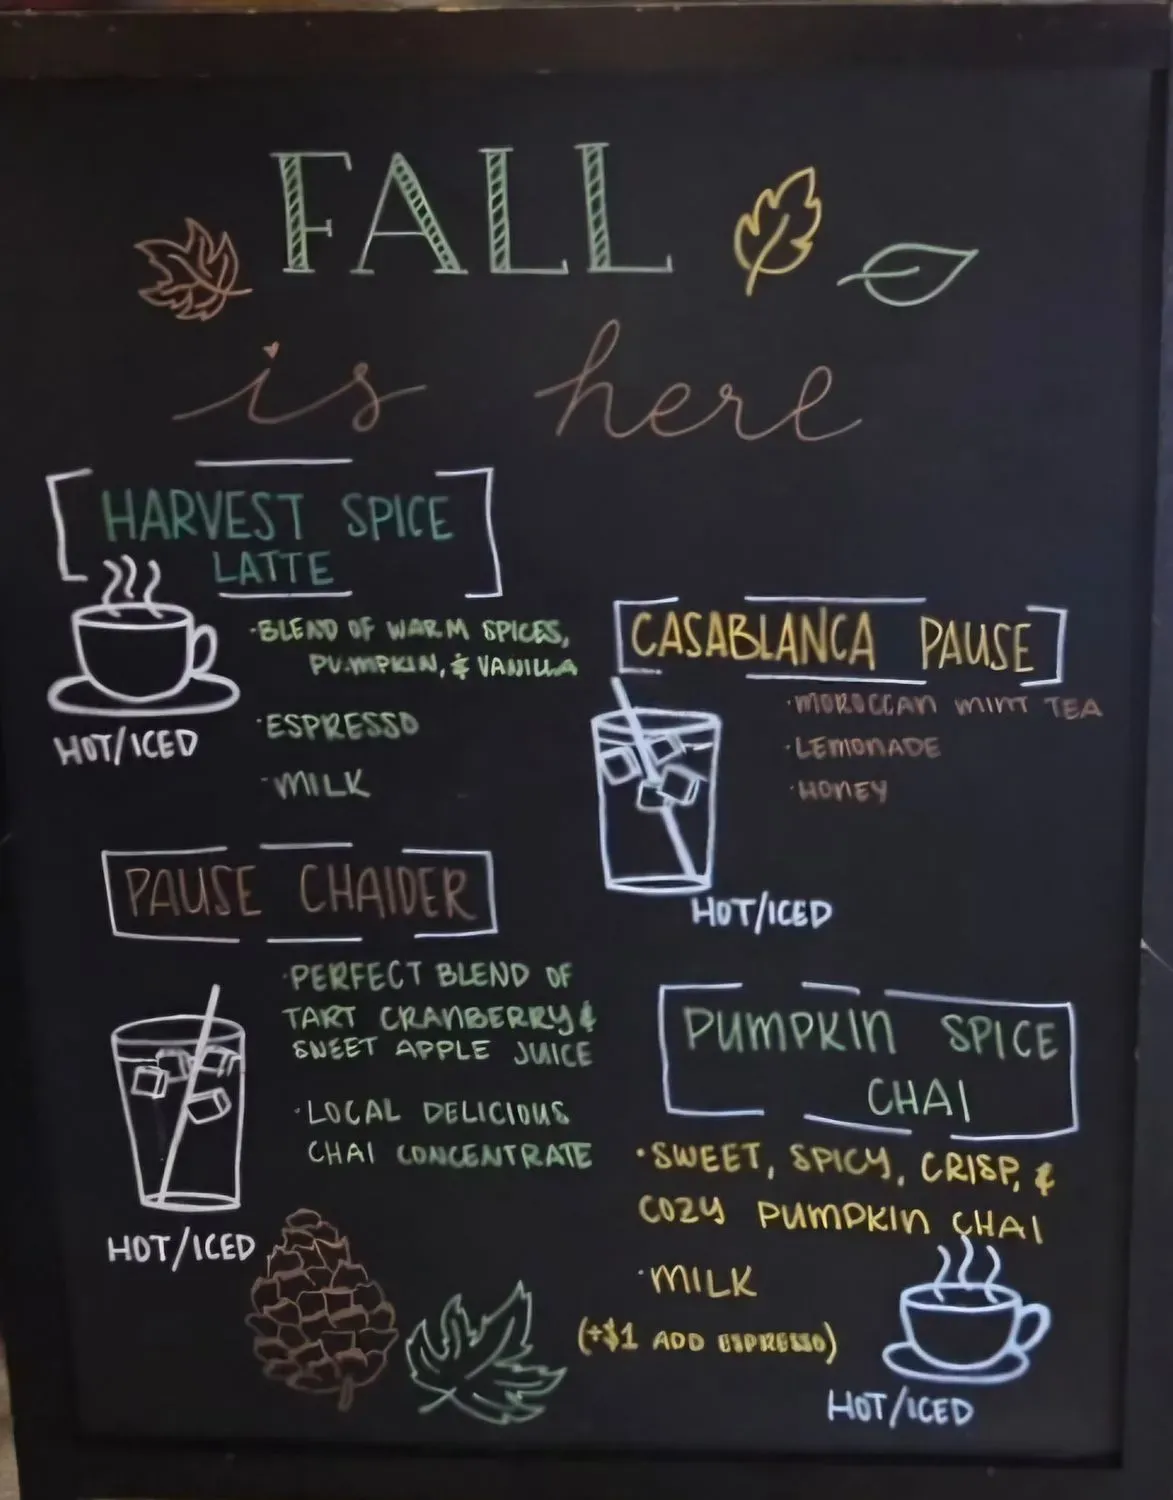 FALL
is here
HARVEST SPICE
LATTE
·BLEND OF WARM SPICES,
PUMPKIN, & VANILLA
·ESPRESSO
·MILK
HOT/ICED
CASABLANCA PAUSE
·MOROCCAN MINT TEA
·LEMONADE
·HONEY
HOT/ICED
PAUSE CHAIDER
·PERFECT BLEND OF
TART CRANBERRY &
SWEET APPLE JUICE
·LOCAL DELICIOUS
CHAI CONCENTRATE
HOT/ICED
PUMPKIN SPICE
CHAI
·SWEET, SPICY, CRISP, &
COZY PUMPKIN CHAI
·MILK
(+$1 ADD ESPRESSO)
HOT/ICED